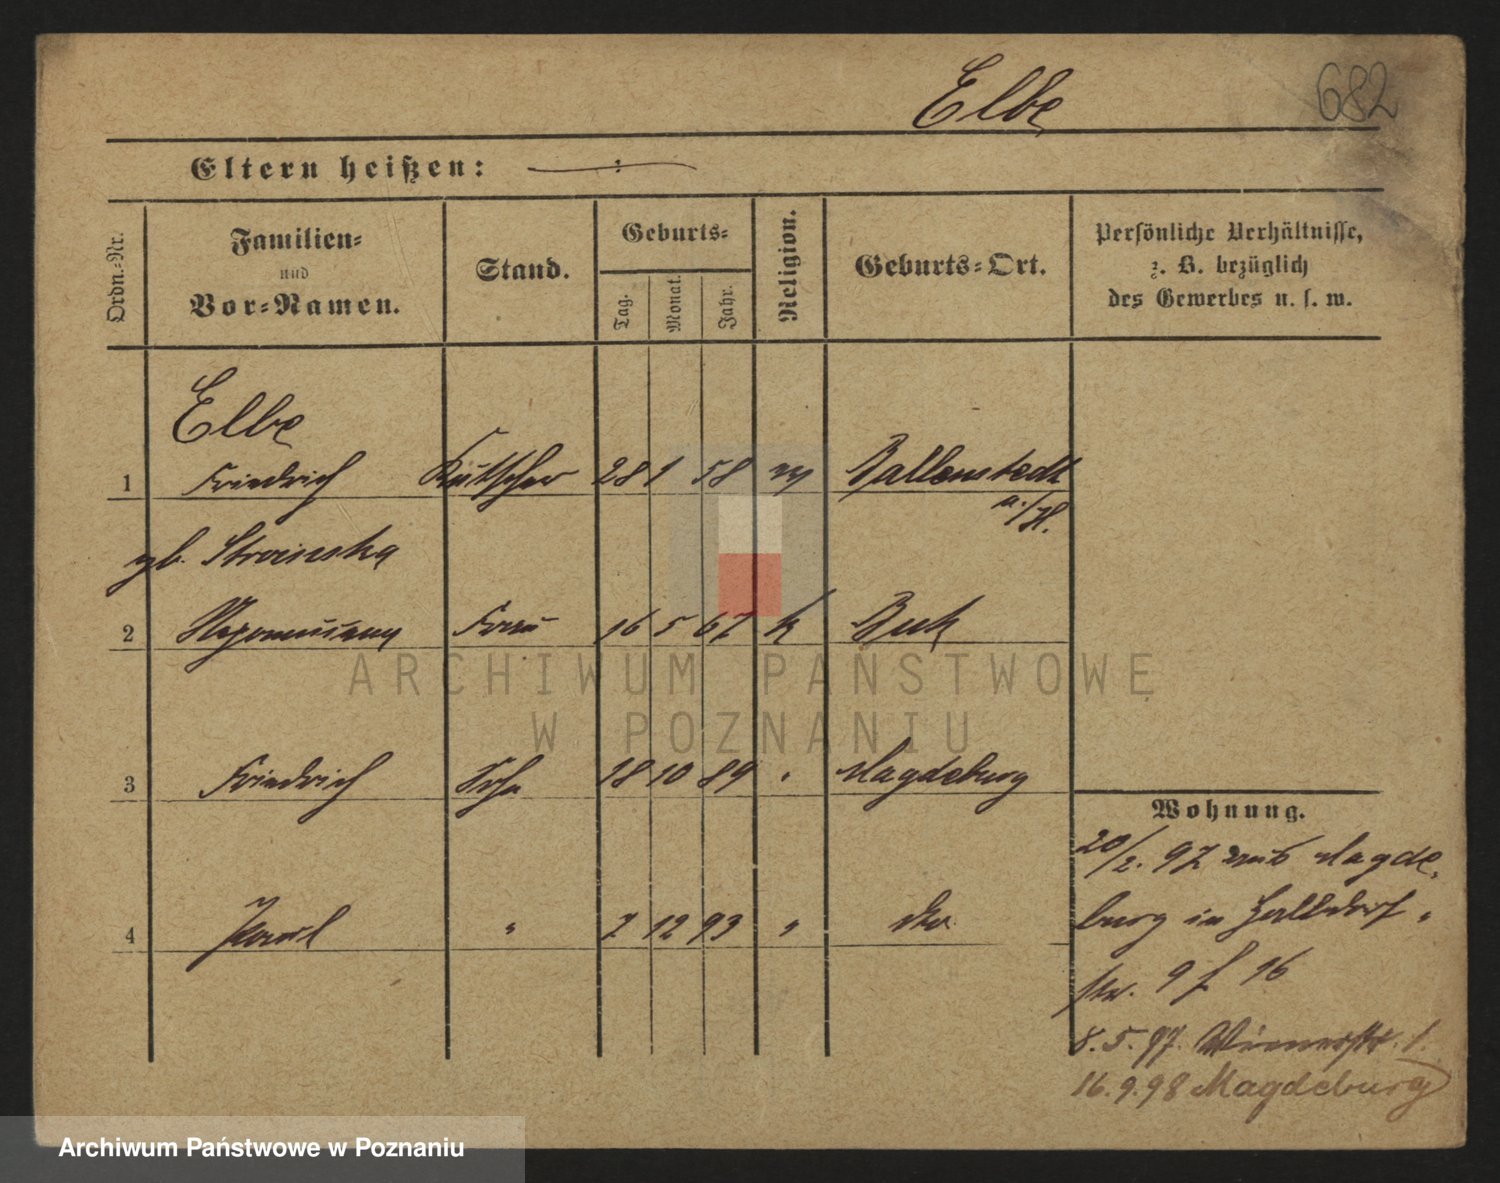 Elbe
682
Eltern heißen: —:—
Ordn.=Nr.
Familien=
und
Vor=Namen.
Stand.
Geburts=
Tag.
Monat.
Jahr.
Religion.
Geburts=Ort.
Persönliche Verhältnisse,
z. B. bezüglich
des Gewerbes u. s. w.
Elbe
1 Friedrich Kutscher 28 1 58 ev Ballenstedt
a./H.
gb. Stroinska
2 Nepomucena Frau 16 5 67 k Buk
3 Friedrich Sohn 18 10 89 " Magdeburg
4 Karl " 7 12 93 " dto
Wohnung.
20/2. 97 aus Magde-
burg in
str. 9 16
8.5.97. Wienerstr. 1.
16.9.98 Magdeburg
ARCHIWUM PAŃSTWOWE
W POZNANIU
Archiwum Państwowe w Poznaniu